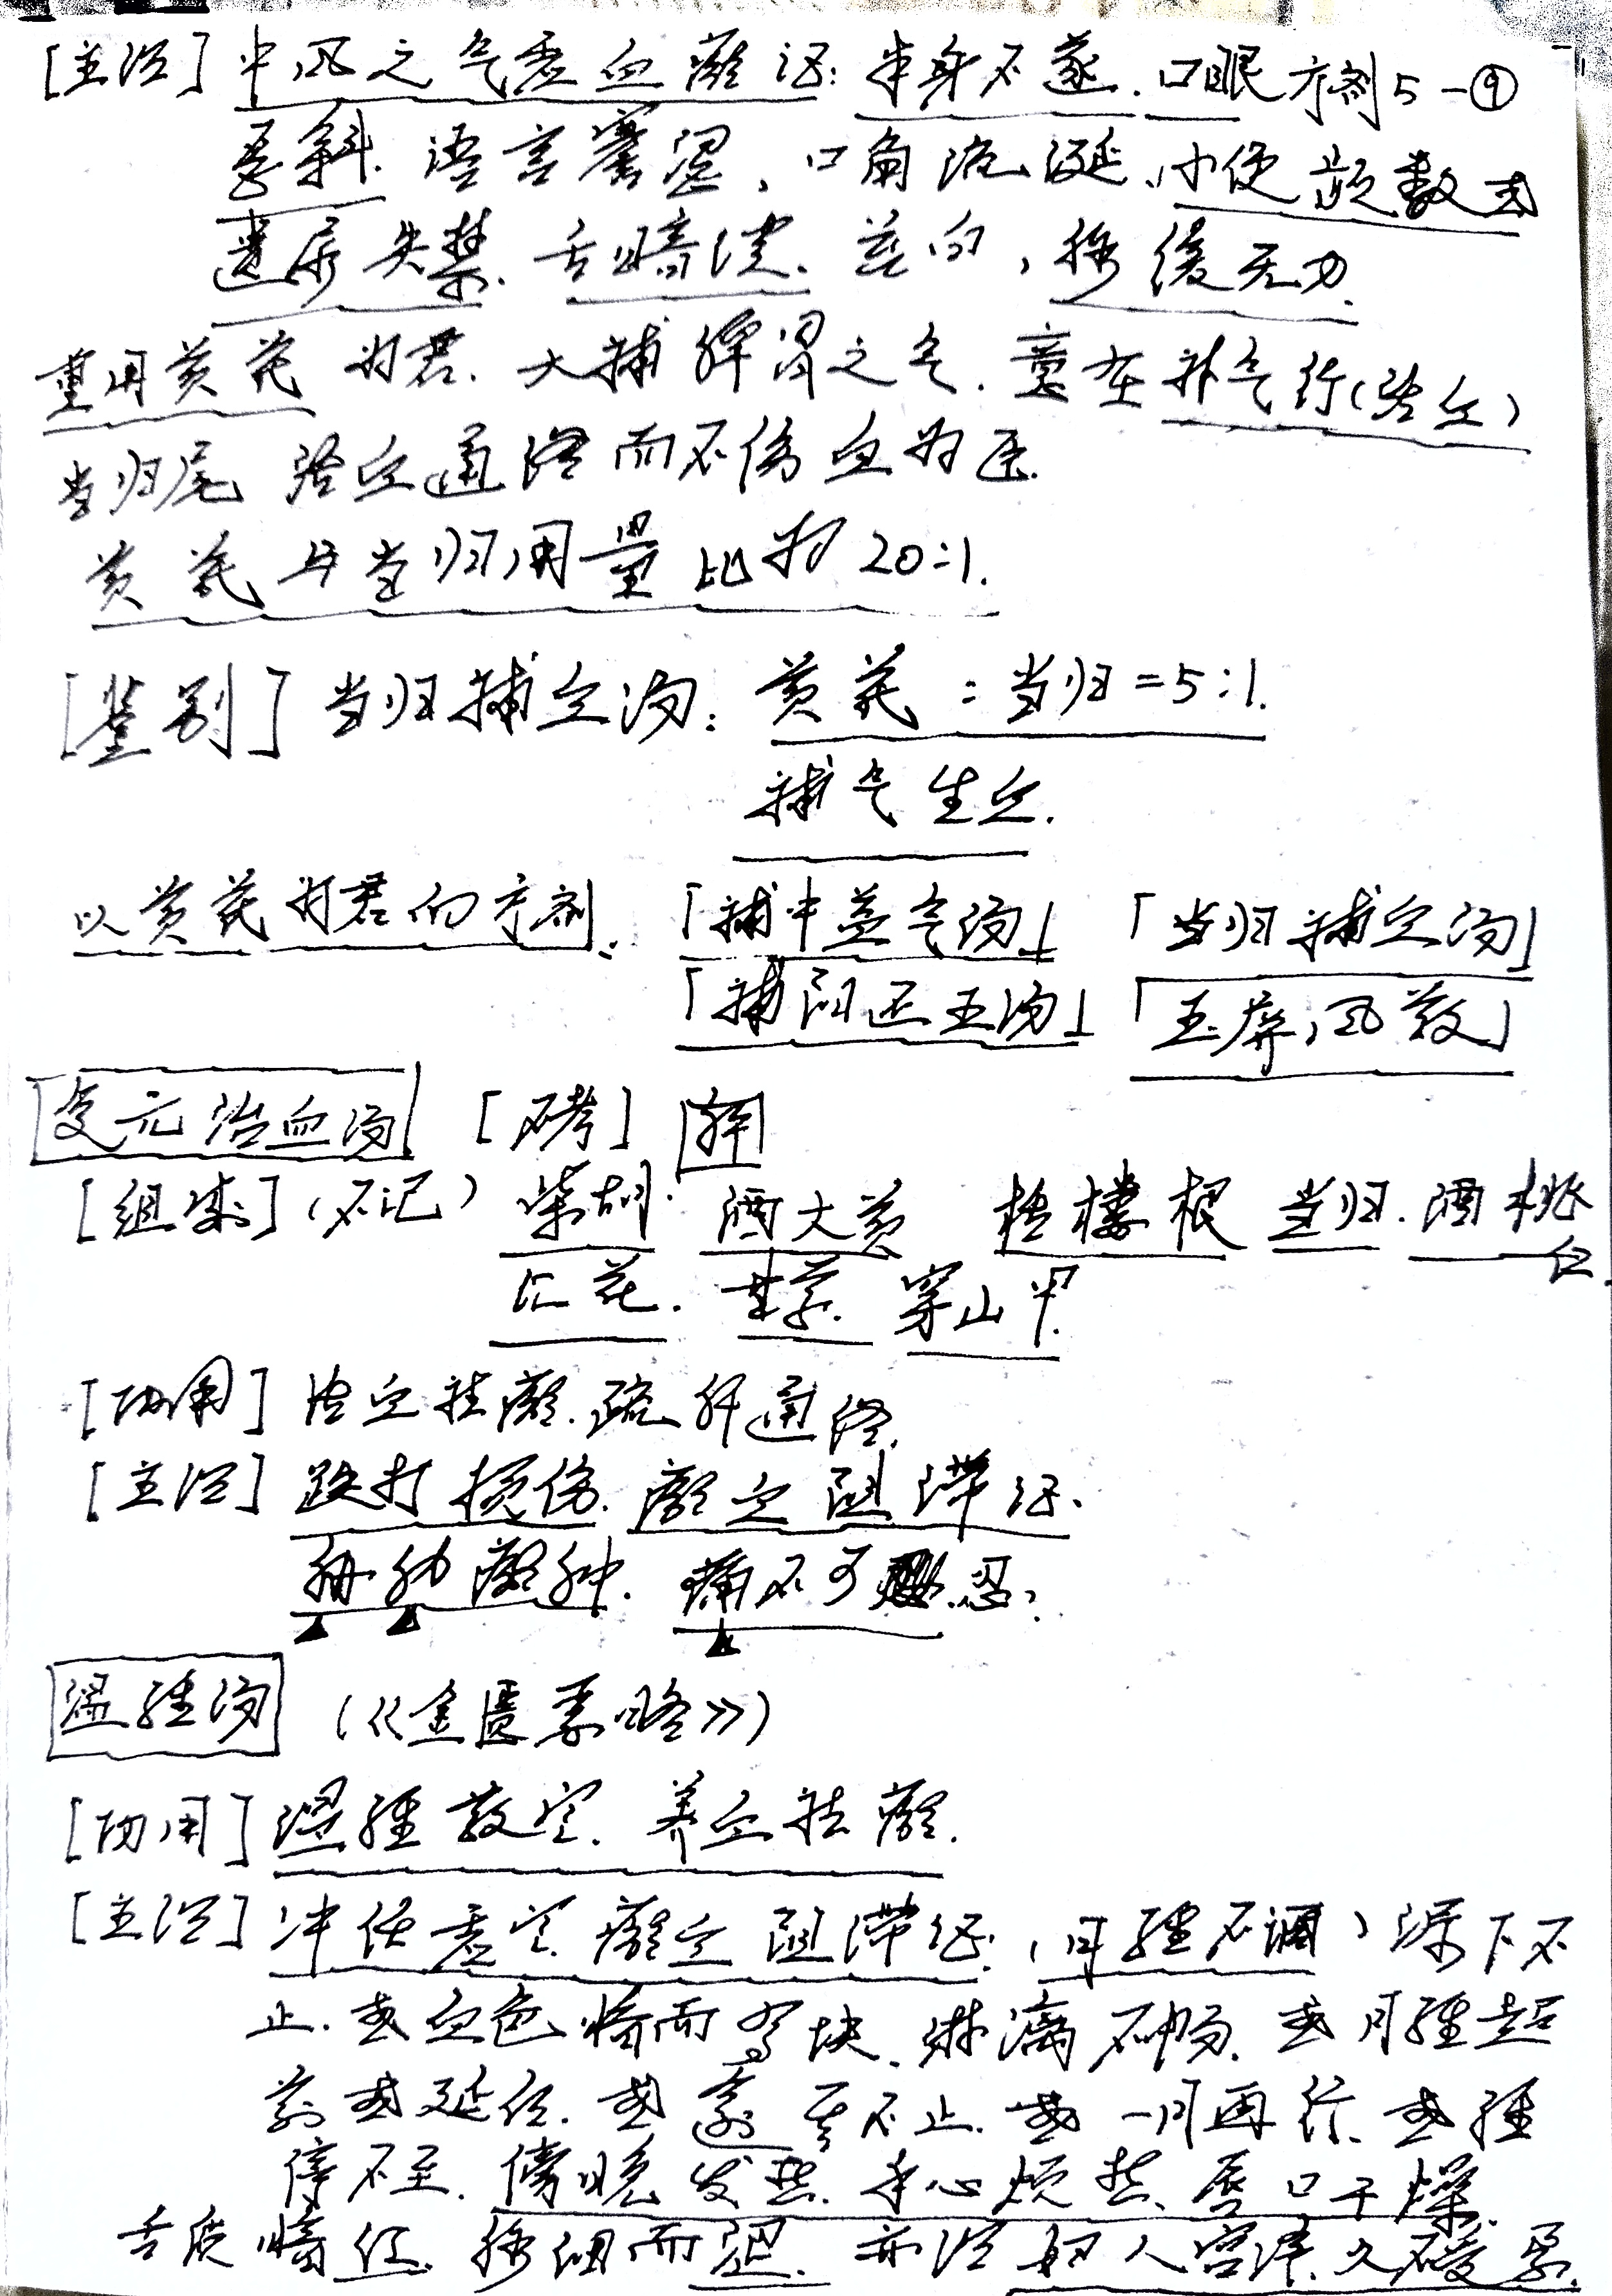 [主治] 中风之气虚血瘀证: 半身不遂. 口眼 方剂5-⑨
歪斜. 语言蹇涩、口角流涎、小便频数或
遗尿失禁. 舌暗淡. 苔白, 脉缓无力.
重用黄芪 为君. 大補脾胃之气. 意在补气行(活血)
当归尾 活血通络而不伤血为臣.
黄芪与当归用量比为20:1.
[鉴别] 当归補血汤: 黄芪:当归=5:1.
補气生血.
以黄芪为君的方剂: 「補中益气汤」 「当归補血汤」
「補阳还五汤」 「玉屏风散」
复元活血汤 [不考]
[组成] (不记) 柴胡. 酒大黄 栝楼根 当归. 酒桃仁.
红花. 甘草. 穿山甲.
[功用] 活血祛瘀. 疏肝通络.
[主治] 跌打损伤. 瘀血阻滞证.
胁肋瘀肿. 痛不可忍.
温經汤 (《金匮要略》)
[功用] 温經散寒. 养血祛瘀.
[主治] 冲任虚寒. 瘀血阻滞证. (月經不调) 漏下不
止. 或血色暗而有块. 淋漓不畅. 或月經超
前或延后. 或逾期不止. 或一月再行. 或經
停不至. 傍晚发热. 手心烦热. 唇口干燥.
舌质暗红. 脉细而涩. 亦治妇人宫寒. 久不受孕.